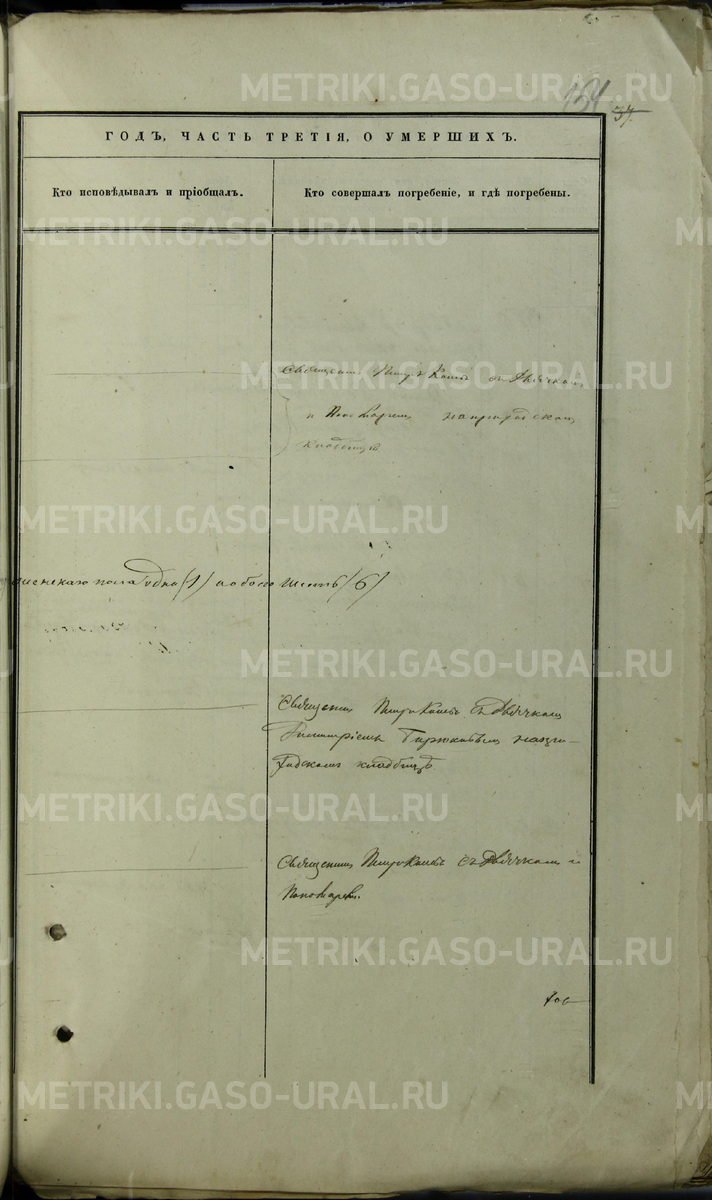 154
37
ГОДЪ, ЧАСТЬ ТРЕТІЯ, О УМЕРШИХЪ.
Кто исповѣдывалъ и пріобщалъ.
Кто совершалъ погребеніе, и гдѣ погребены.
Священник Петръ съ Дьячком
и Пономарем на городском
кладбищѣ
пола одна (1) а обоего шесть (6)
Священник Петръ съ Дьячком
Димитріемъ на го-
родскомъ кладбищѣ
Священник Петръ съ Дьячком и
Пономарем.
METRIKI.GASO-URAL.RU
METRIKI.GASO-URAL.RU
METRIKI.GASO-URAL.RU
METRIKI.GASO-URAL.RU
METRIKI.GASO-URAL.RU
METRIKI.GASO-URAL.RU
METRIKI.GASO-URAL.RU
METRIKI.GASO-URAL.RU